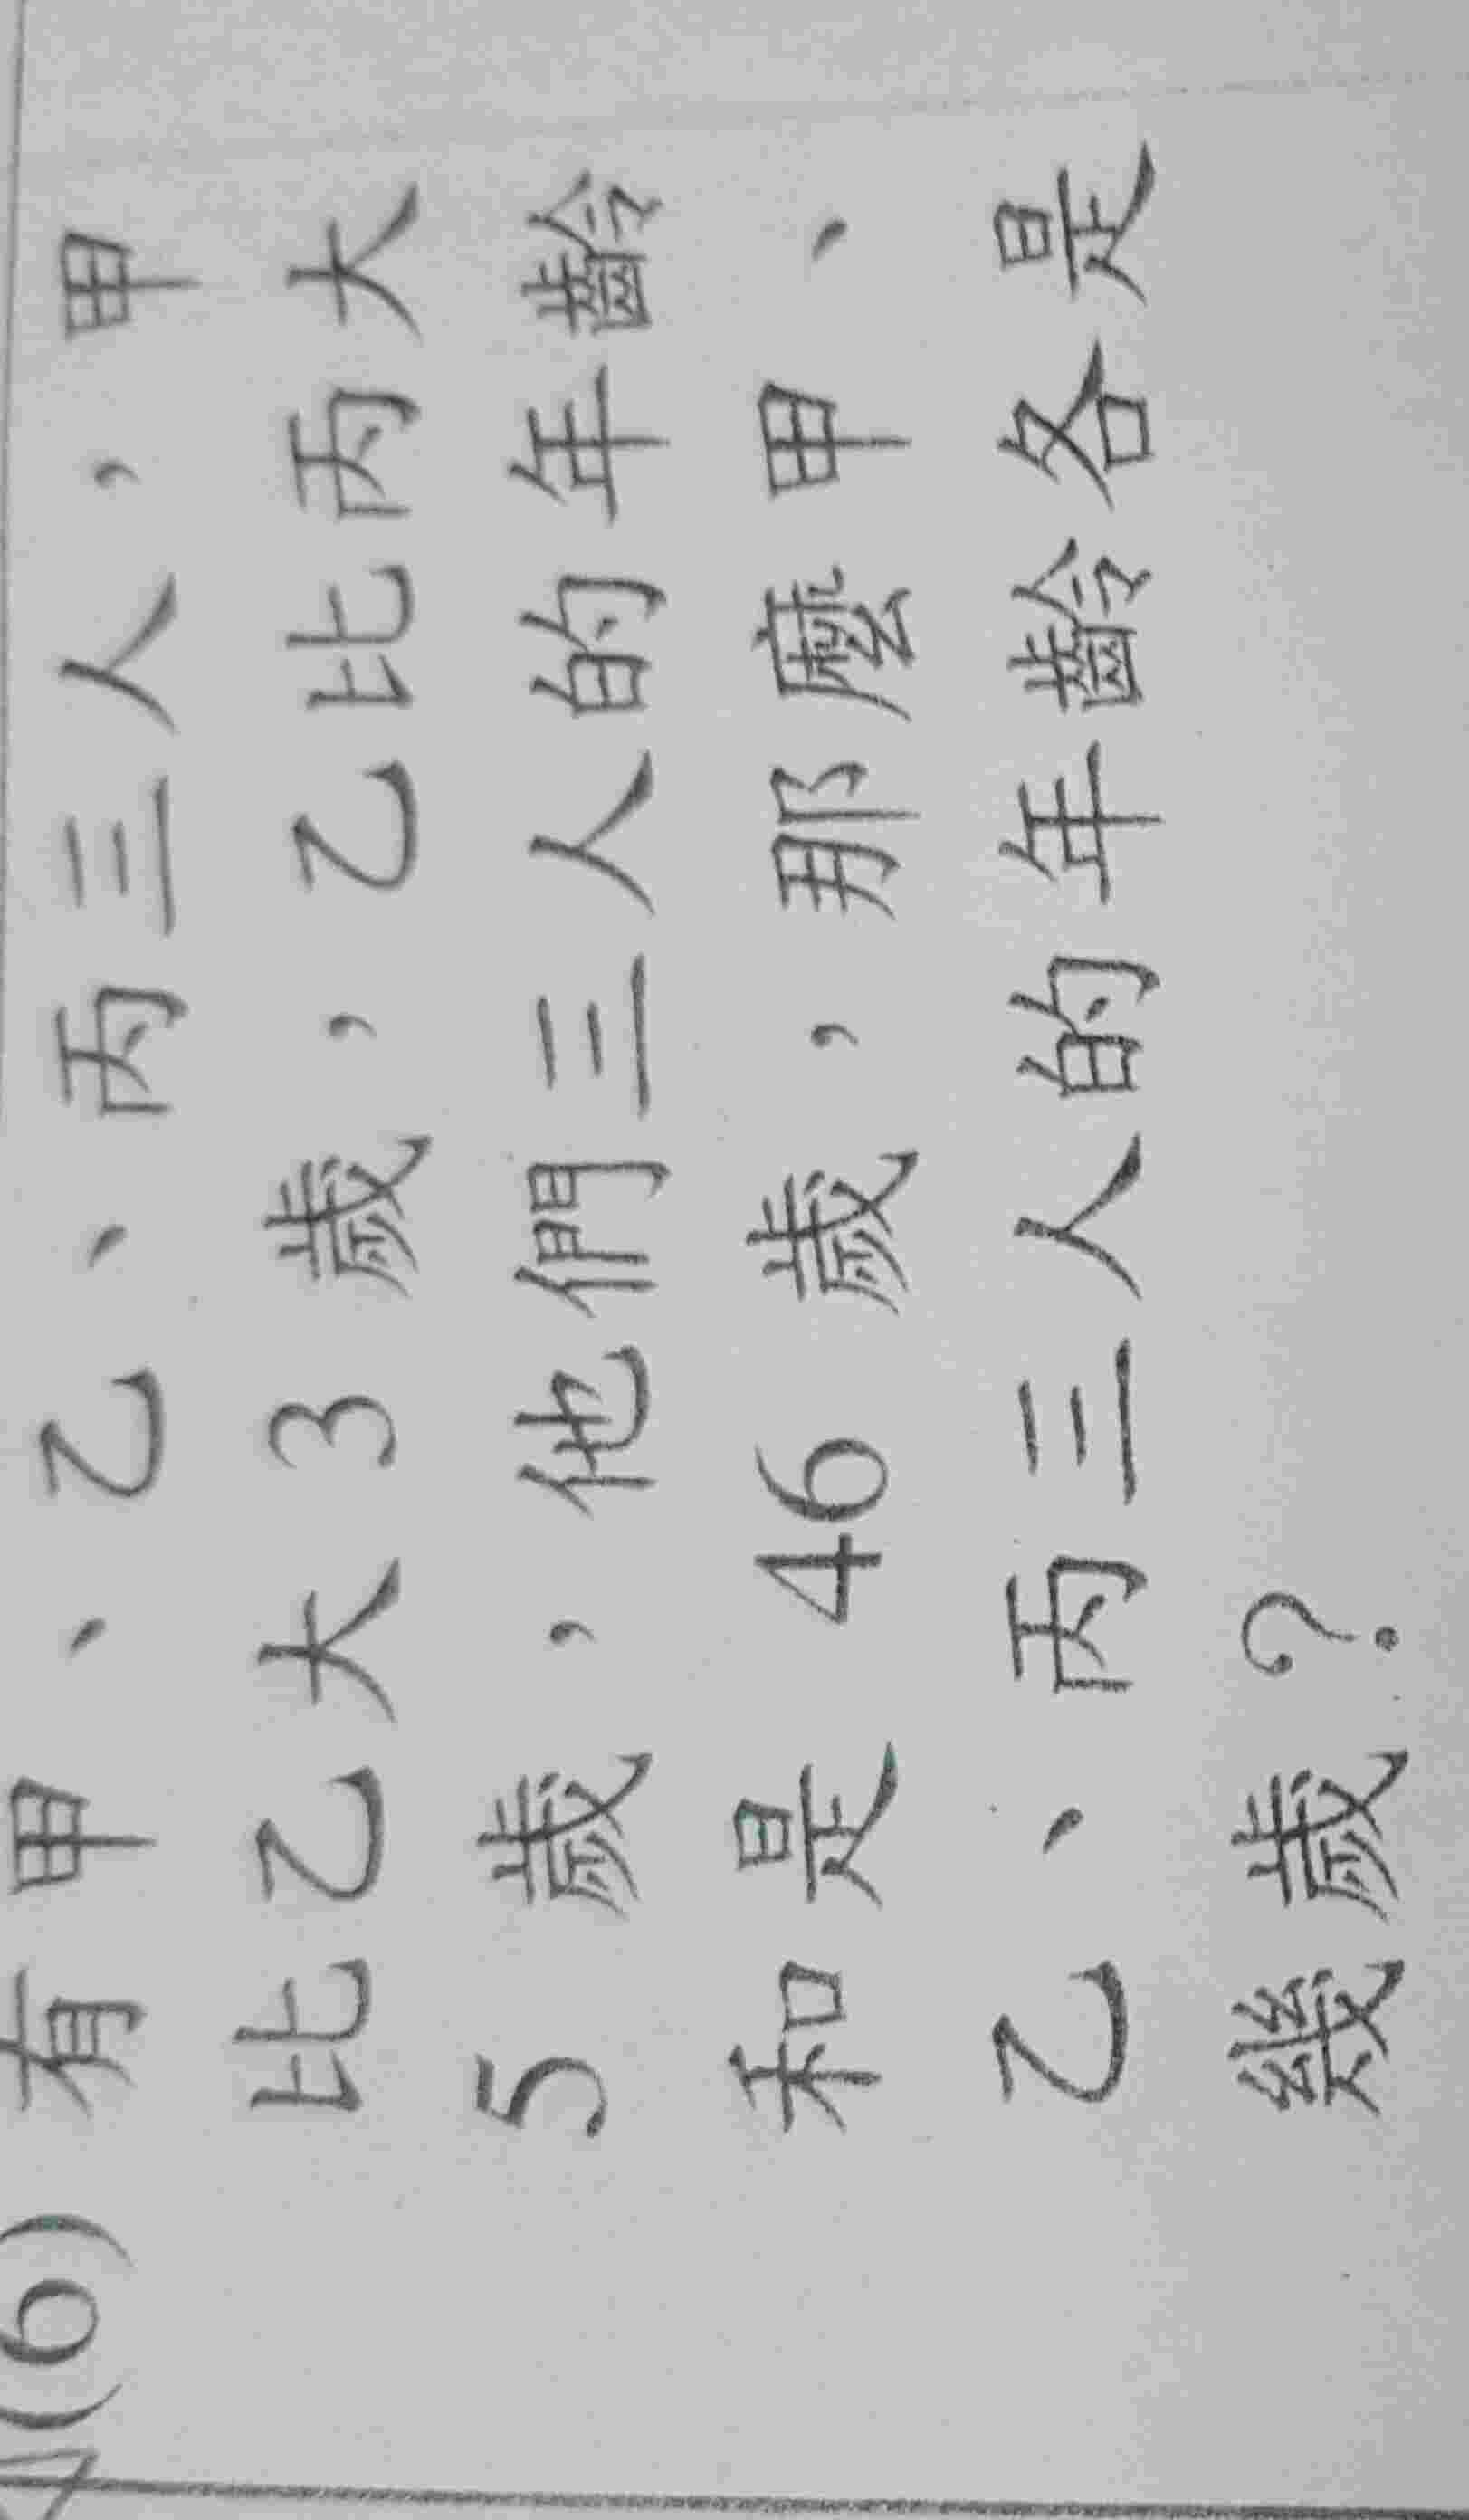 (6) 有甲、乙、丙三人,甲
比乙大3歲,乙比丙大
5歲,他們三人的年齡
和是46歲,那麼甲、
乙、丙三人的年齡各是
幾歲?